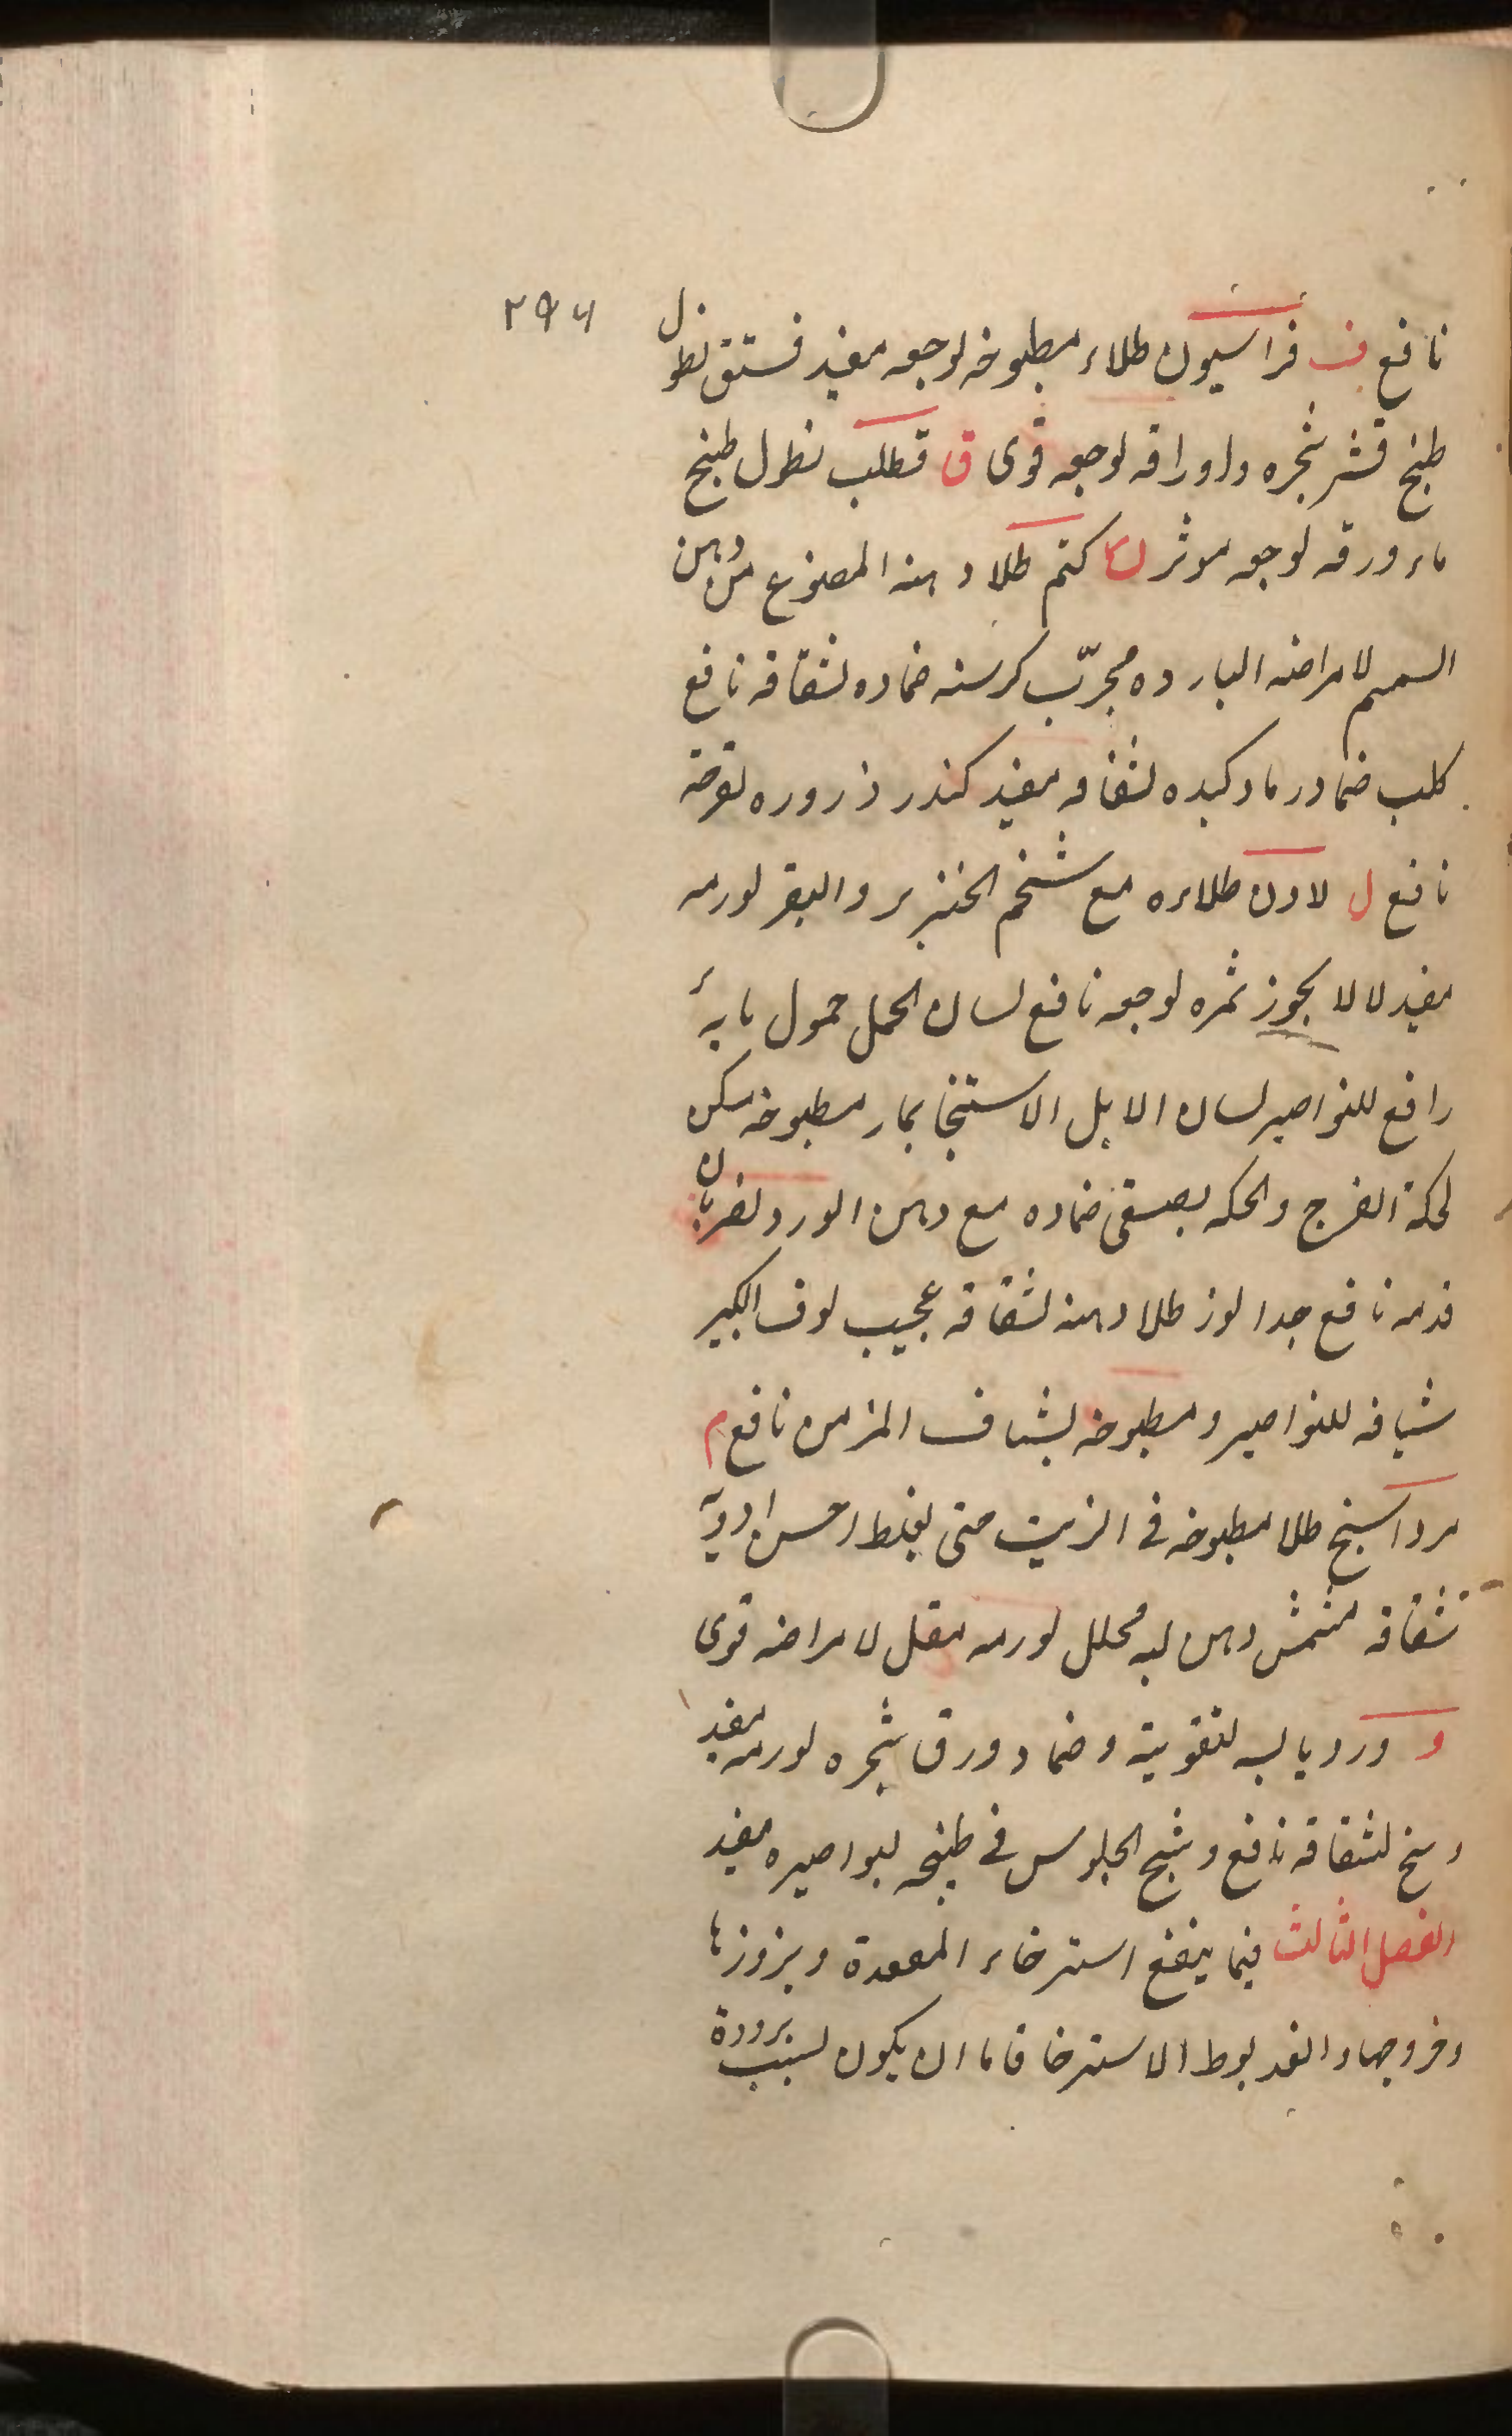 ٢٩٤
نافع ف فراسيون طلاء مطبوخه لوجعه مفيد فستق نطول
طبخ قشر شجره واوراقه لوجعه قوى ق قطلب نطول طبخ
ماء ورقه لوجعه موثر ك كتم طلا دهنه المصنوع من دهن
السمسم لامراضه البارده مجرّب كرسنه ضماده لشقاقه نافع
كلب ضماد رماد كبده لشقاقه مفيد كندر ذروره لقرحته
نافع ل لادن طلاءه مع شخم الخنزير والبقر لورمه
مفيد لالا يجوز ثمره لوجعه نافع لسان الحمل حمول مايه
رافع للنواصير لسان الابل الاستنجا بماء مطبوخه مسكن
لحكة الفرج والحكه بصقى ضماده مع دهن الورد لضربان
فدمه نافع جدا لوز طلا دهنه لشقاقه عجيب لوف الكبير
شيافه للنواصير ومطبوخه لشقاق المزمن نافع م
مرداسنج طلا مطبوخه فى الزيت حتى يغلظ احسن ادوية
شقاقه مشمش دهن لبه محلل لورمه مقل لامراضه قوى
و ورد يابسه لتقويته وضماد ورق شجره لورمه مفيد
وسخ لشقاقه نافع وشج الجلوس فى طبخه لبواصيره مفيد
الفصل الثالث فيما ينفع استرخاء المقعدة وبروزها
وخروجها والضربوط الاسترخا فاما ان يكون لسبب برودة